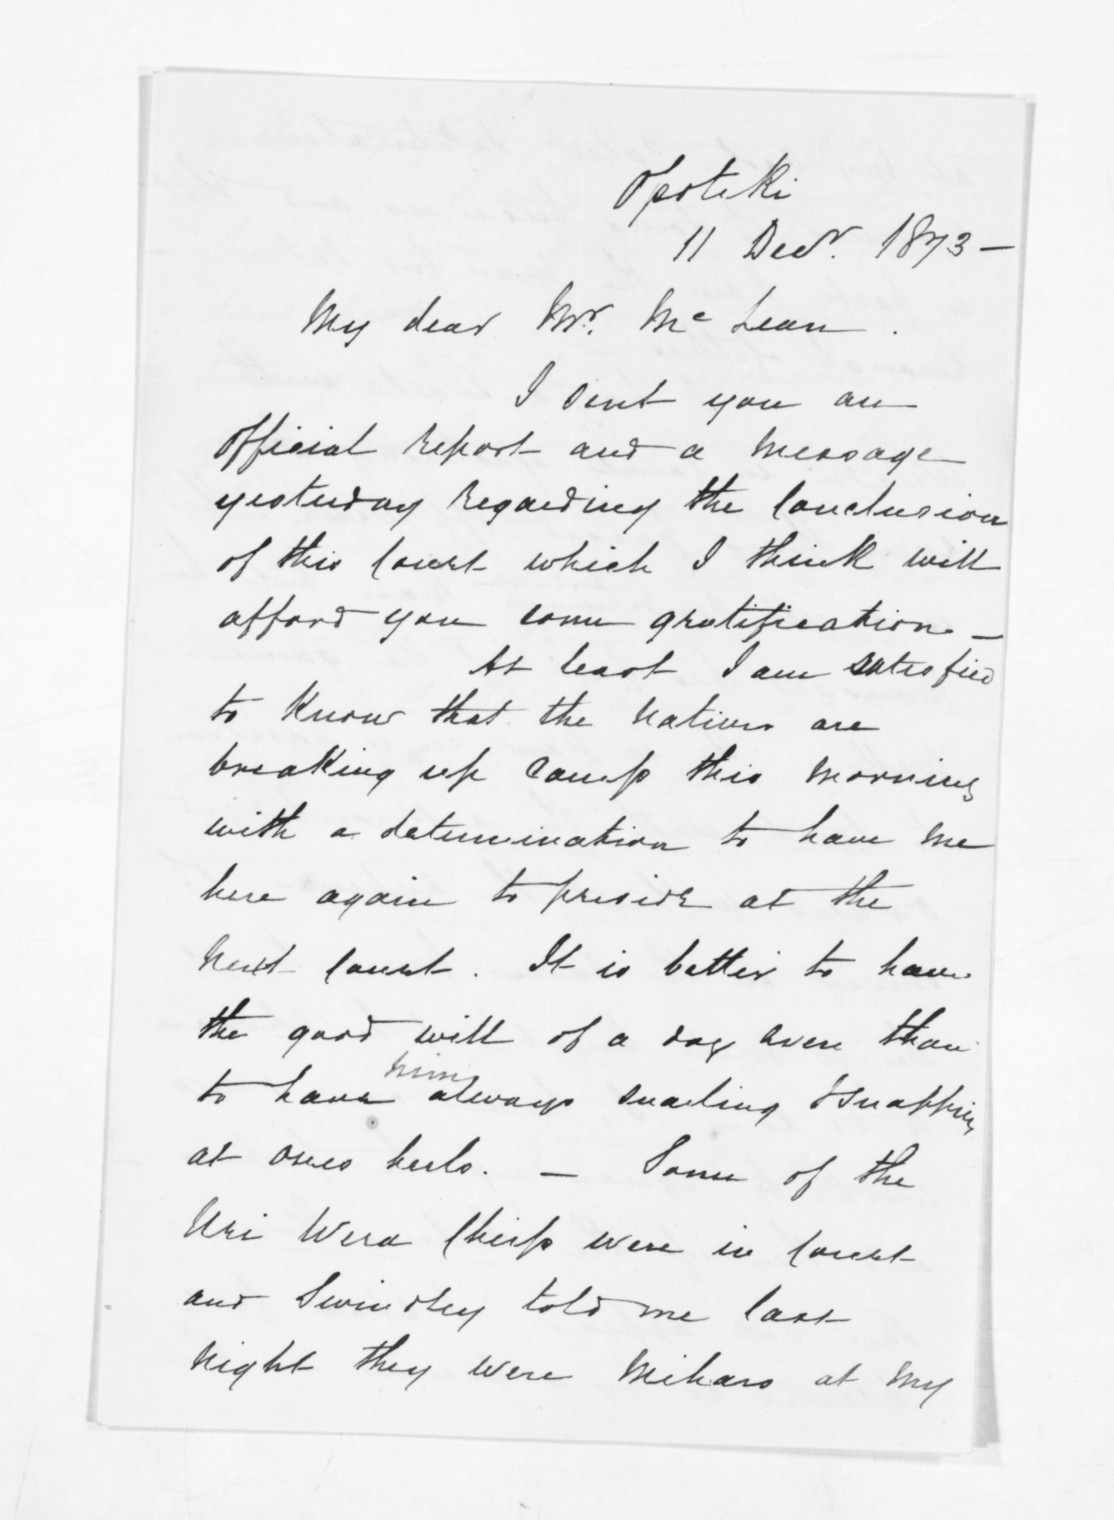 Opotiki
11 Decr. 1873 -
My dear Mr. McLean.
I sent you an
official report and a message
yesterday regarding the conclusion
of this Court which I think will
afford you some gratification. -
At least I am satisfied
to know that the natives are
breaking up camp this morning
with a determination to have me
here again to preside at the
next Court. It is better to have
the good will of a dog even than
to have him always snarling & snapping
at ones heels. - Some of the
Uri Wera Chiefs were in Court
and Swindley told me last
night they were miharo at my